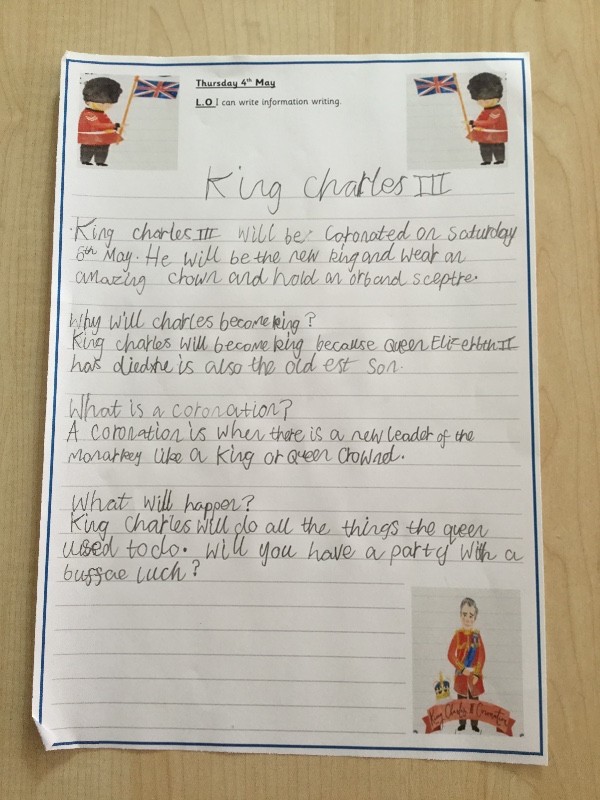 Thursday 4th May
L.O I can write information writing.
King Charles III
King charles III will be coronated on saturday
6th May. He will be the new king and wear an
amazing crown and hold an orb and sceptre.
Why will charles become king?
King charles will become king because Queen Elizerbth II
has died she is also the old est son.
What is a coronation?
A coronation is when there is a new leader of the
Monarkey like a King or Queen Crownd.
What will happen?
King charles will do all the things the queen
used to do. Will you have a party with a
buffae luch?
King Charles III Coronation